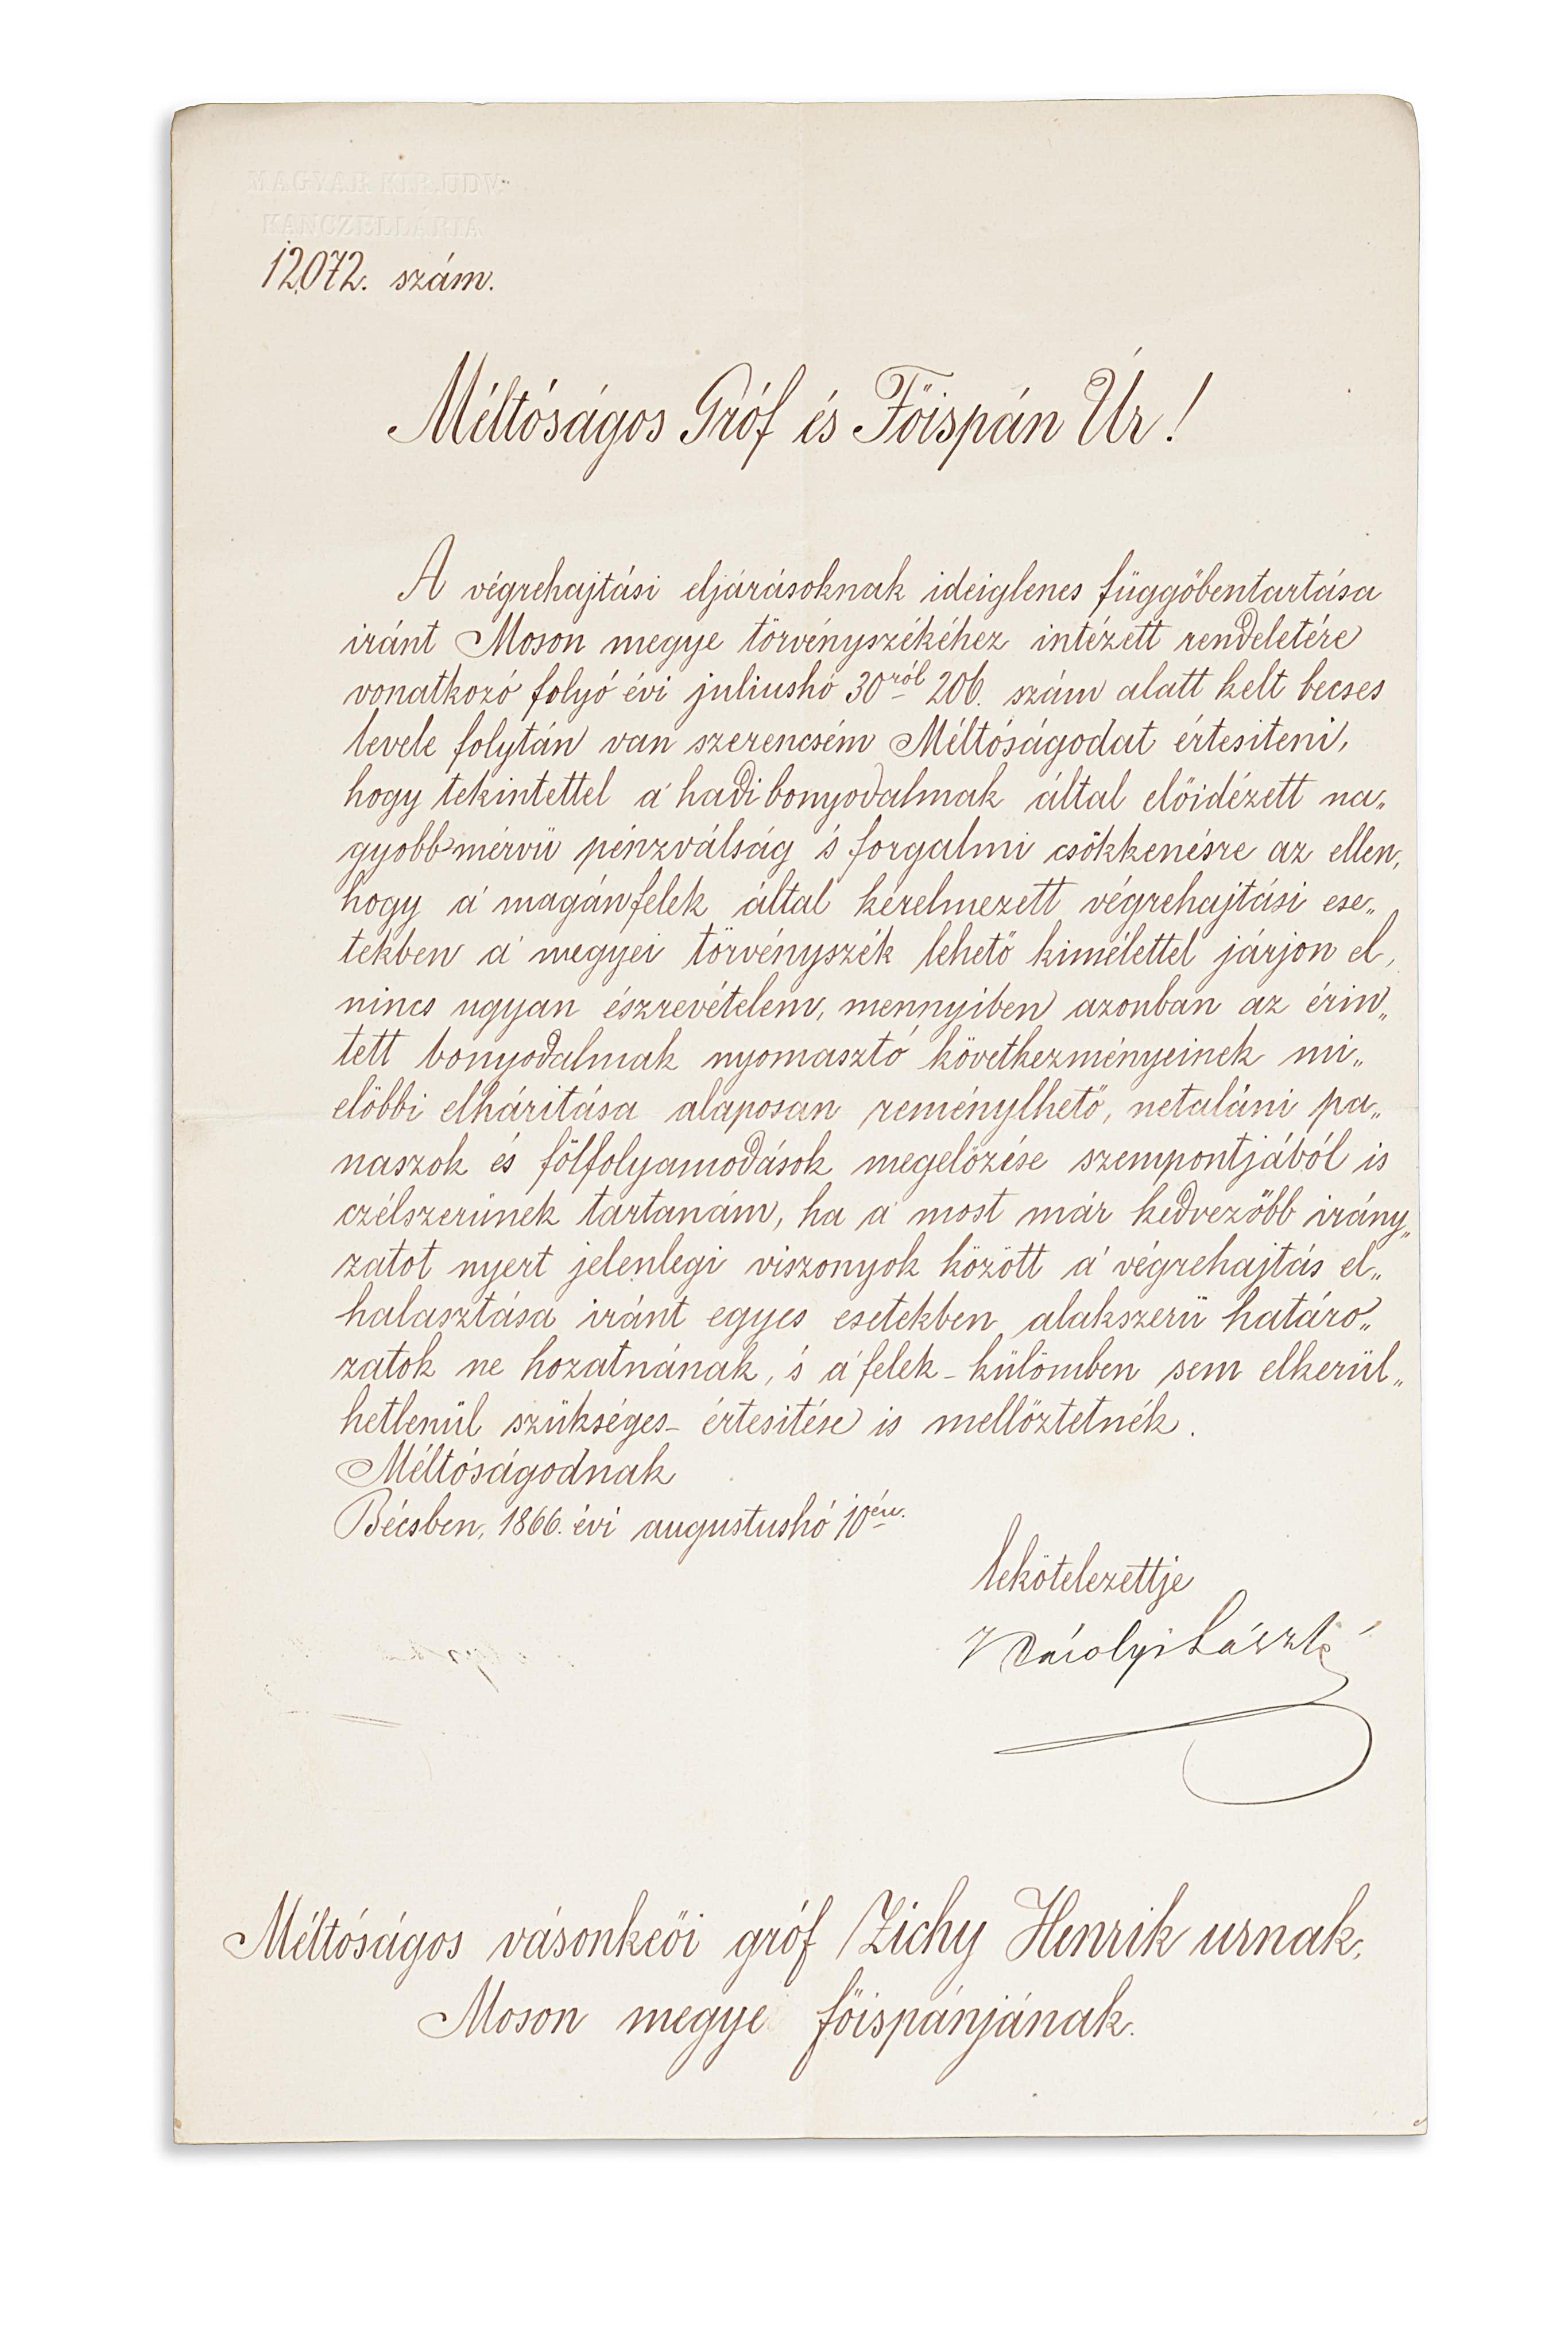 MAGYAR KIR. UDV.
KANCZELLÁRIA
12072. szám.
Méltóságos Gróf és Főispán Úr!
A végrehajtási eljárásoknak ideiglenes függőbentartása
iránt Moson megye törvényszékéhez intézett rendeletére
vonatkozó folyó évi juliushó 30ról 206. szám alatt kelt becses
levele folytán van szerencsém Méltóságodat értesiteni,
hogy tekintettel a' hadi bonyodalmak által előidézett na„
gyobbmérvü pénzválság 's forgalmi csökkenésre az ellen,
hogy a' magánfelek által kérelmezett végrehajtási ese„
tekben a' megyei törvényszék lehető kimélettel járjon el,
nincs ugyan észrevételem, mennyiben azonban az érin„
tett bonyodalmak nyomasztó következményeinek mi„
előbbi elháritása alaposan reménylhető, netaláni pa„
naszok és fölfolyamodások megelőzése szempontjából is
czélszerünek tartanám, ha a' most már kedvezőbb irány„
zatot nyert jelenlegi viszonyok között a' végrehajtás el„
halasztása iránt egyes esetekben alakszerü határo„
zatok ne hozatnának, 's a' felek - külömben sem elkerül„
hetlenül szükséges - értesitése is mellőztetnék.
Méltóságodnak
Bécsben, 1866. évi augustushó 10én.
lekötelezettje
Károlyi László
Méltóságos vásonkeői gróf Zichy Henrik urnak,
Moson megye főispánjának.